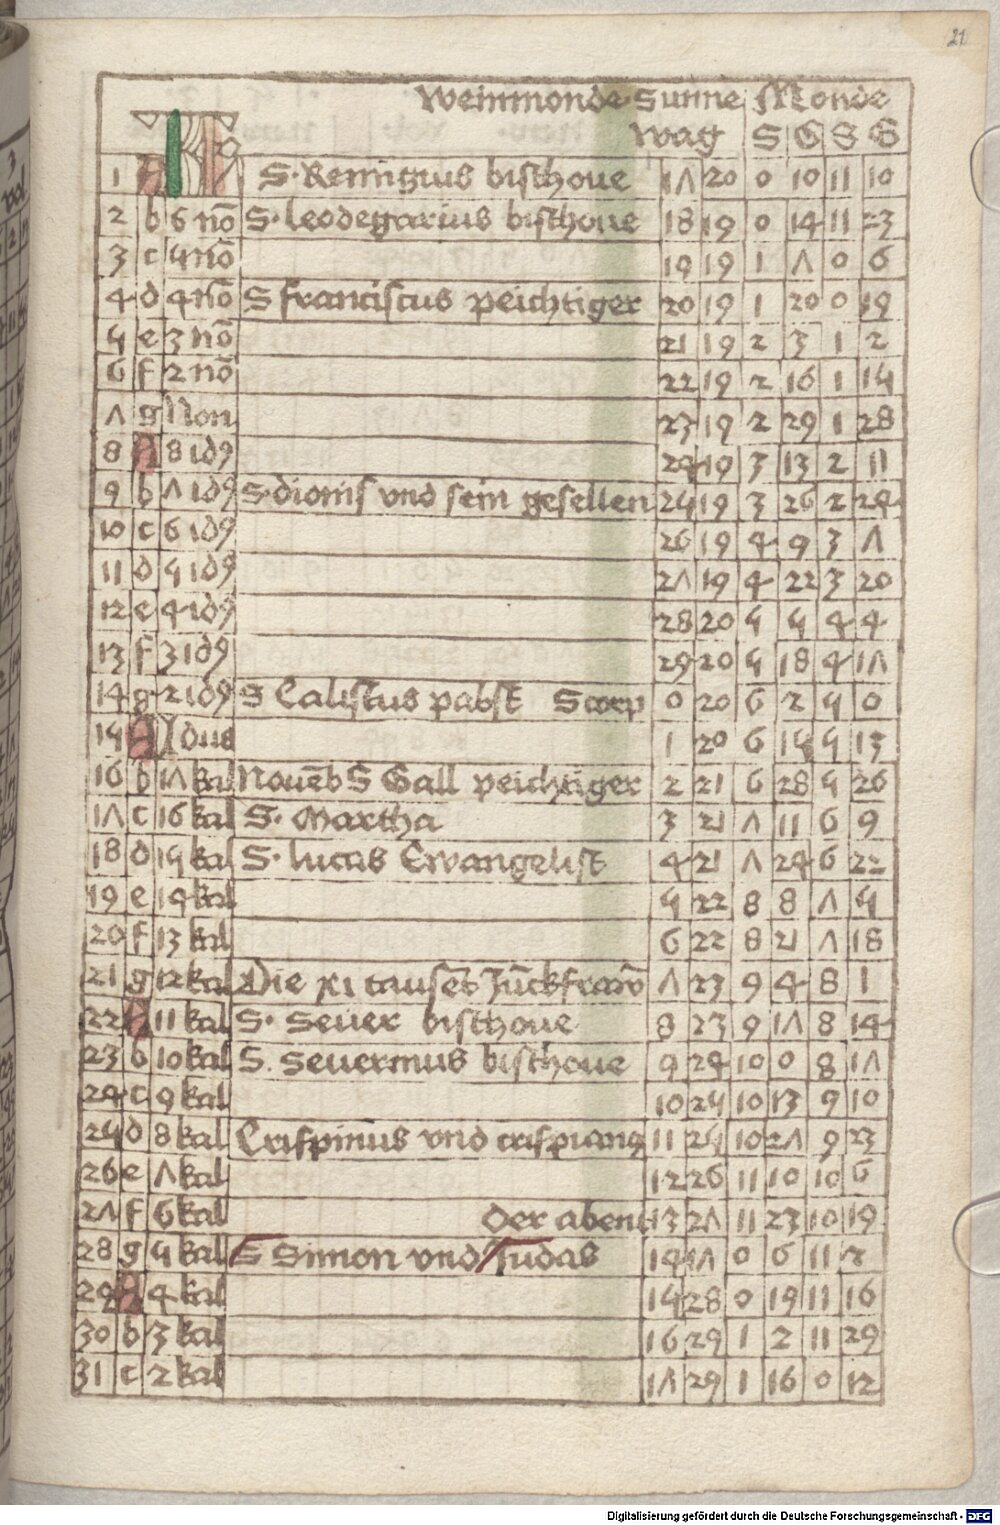 21
Weinmonde Sunne Monde
Wag S G S G
1 A KL S. Remigius bisthoue 17 20 0 10 11 10
2 b 6 nō S. leodegarius bisthoue 18 19 0 14 11 23
3 c 5 nō 19 19 1 7 0 6
4 d 4 nō S franciscus peichtiger 20 19 1 20 0 19
5 e 3 nō 21 19 2 3 1 2
6 f 2 nō 22 19 2 16 1 15
7 g Non 23 19 2 29 1 28
8 A 8 idꝰ 24 19 3 13 2 11
9 b 7 idꝰ S. dionis vnd sein gesellen 25 19 3 26 2 24
10 c 6 idꝰ 26 19 4 9 3 7
11 d 5 idꝰ 27 19 4 22 3 20
12 e 4 idꝰ 28 20 5 5 4 4
13 f 3 idꝰ 29 20 5 18 4 17
14 g 2 idꝰ S Calistus pabst Scorp 0 20 6 2 5 0
15 A Idus 1 20 6 15 5 13
16 b 17 kal Nouēb S Gall peichtiger 2 21 6 28 5 26
17 c 16 kal S. Martha 3 21 7 11 6 9
18 d 15 kal S. lucas Ewangelist 4 21 7 24 6 22
19 e 14 kal 5 22 8 8 7 5
20 f 13 kal 6 22 8 21 7 18
21 g 12 kal Die xi tausēt Jūckfraw 7 23 9 4 8 1
22 A 11 kal S. Seuer bisthoue 8 23 9 17 8 14
23 b 10 kal S. Seuerinus bisthoue 9 24 10 0 8 17
24 c 9 kal 10 25 10 13 9 10
25 d 8 kal Crispinus vnd crispianꝰ 11 25 10 27 9 23
26 e 7 kal 12 26 11 10 10 6
27 f 6 kal der abent 13 27 11 23 10 19
28 g 5 kal S Simon vnd Judas 14 17 0 6 11 2
29 A 4 kal 15 28 0 19 11 16
30 b 3 kal 16 29 1 2 11 29
31 c 2 kal 17 29 1 16 0 12
Digitalisierung gefördert durch die Deutsche Forschungsgemeinschaft - DFG